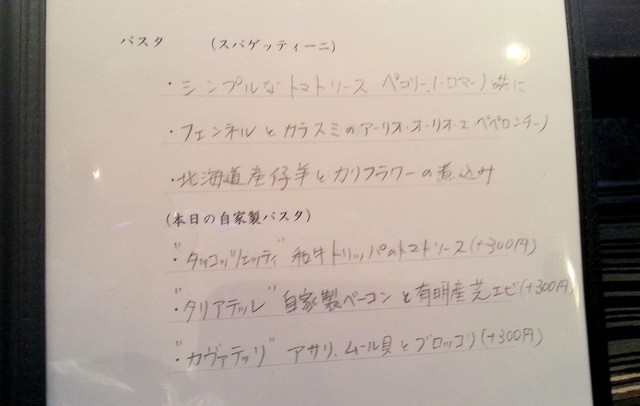 パスタ　（スパゲッティーニ）
・シンプルなトマトソース ペコリーノ・ロマーノと共に
・フェンネルとカラスミのアーリオ・オーリオ・エ ペペロンチーノ
・北海道産仔羊とカリフラワーの煮込み
(本日の自家製パスタ)
"タッコッツェッティ" 和牛トリッパのトマトソース(+300円)
"タリアテッレ" 自家製ベーコンと有明産芝エビ(+300円)
"カヴァテッリ" アサリ、ムール貝とブロッコリ(+300円)